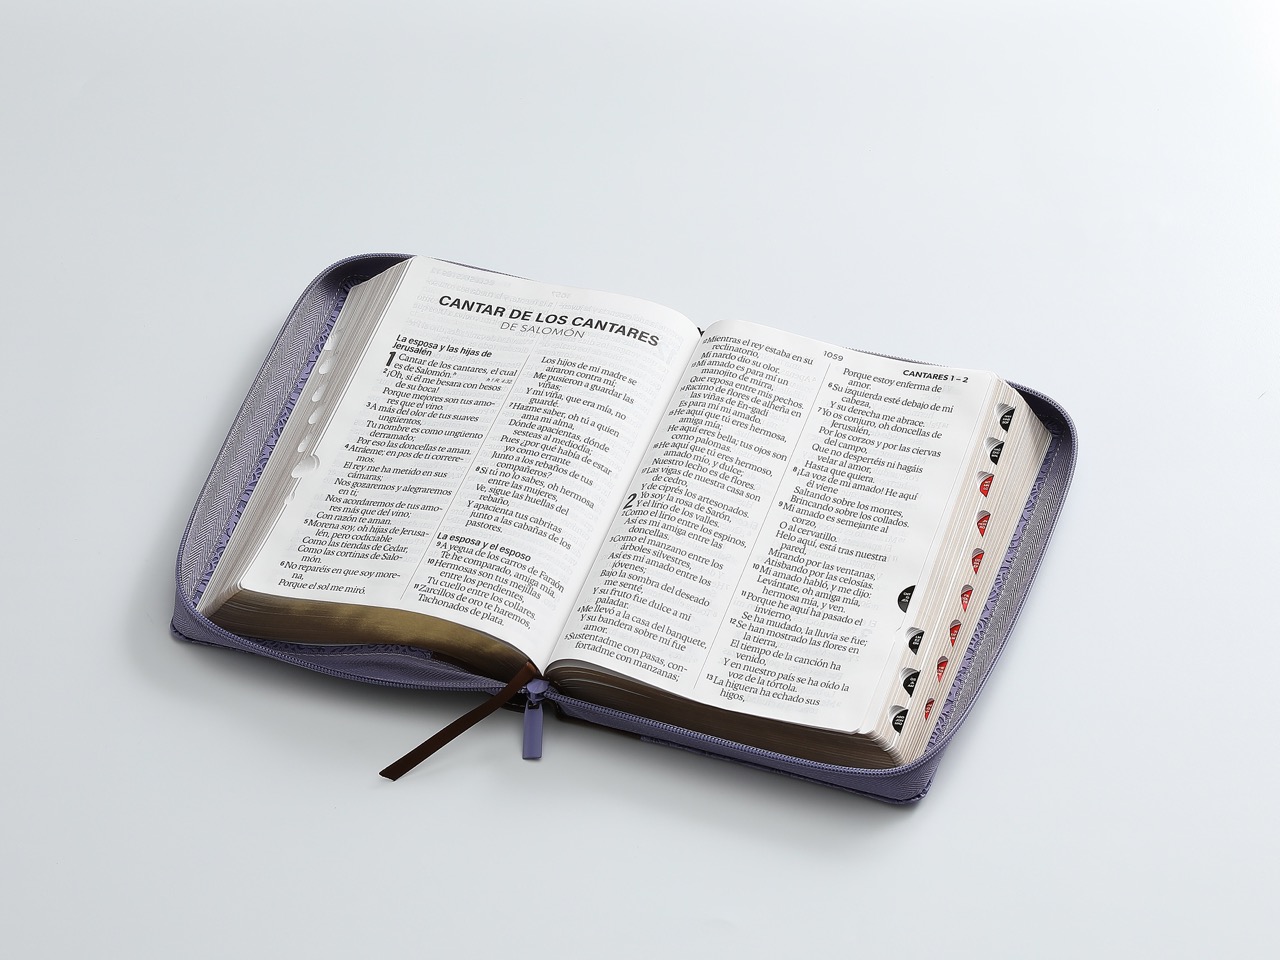 CANTAR DE LOS CANTARES
DE SALOMÓN
La esposa y las hijas de
Jerusalén
1 Cantar de los cantares, el cual
es de Salomón.ᵃ
a 1 R. 4:32
2 ¡Oh, si él me besara con besos
de su boca!
Porque mejores son tus amo-
res que el vino.
3 A más del olor de tus suaves
ungüentos,
Tu nombre es como ungüento
derramado;
Por eso las doncellas te aman.
4 Atráeme; en pos de ti correre-
mos.
El rey me ha metido en sus
cámaras;
Nos gozaremos y alegraremos
en ti;
Nos acordaremos de tus amo-
res más que del vino;
Con razón te aman.
5 Morena soy, oh hijas de Jerusa-
lén, pero codiciable
Como las tiendas de Cedar,
Como las cortinas de Salo-
món.
6 No reparéis en que soy more-
na,
Porque el sol me miró.
Los hijos de mi madre se
airaron contra mí;
Me pusieron a guardar las
viñas;
Y mi viña, que era mía, no
guardé.
7 Hazme saber, oh tú a quien
ama mi alma,
Dónde apacientas, dónde
sesteas al mediodía;
Pues ¿por qué había de estar
yo como errante
Junto a los rebaños de tus
compañeros?
8 Si tú no lo sabes, oh hermosa
entre las mujeres,
Ve, sigue las huellas del
rebaño,
Y apacienta tus cabritas
junto a las cabañas de los
pastores.
La esposa y el esposo
9 A yegua de los carros de Faraón
Te he comparado, amiga mía.
10 Hermosas son tus mejillas
entre los pendientes,
Tu cuello entre los collares.
11 Zarcillos de oro te haremos,
Tachonados de plata.
1059
CANTARES 1 – 2
12 Mientras el rey estaba en su
reclinatorio,
Mi nardo dio su olor.
13 Mi amado es para mí un
manojito de mirra,
Que reposa entre mis pechos.
14 Racimo de flores de alheña en
las viñas de En-gadi
Es para mí mi amado.
15 He aquí que tú eres hermosa,
amiga mía;
He aquí eres bella; tus ojos son
como palomas.
16 He aquí que tú eres hermoso,
amado mío, y dulce;
Nuestro lecho es de flores.
17 Las vigas de nuestra casa son
de cedro,
Y de ciprés los artesonados.
2 Yo soy la rosa de Sarón,
Y el lirio de los valles.
2 Como el lirio entre los espinos,
Así es mi amiga entre las
doncellas.
3 Como el manzano entre los
árboles silvestres,
Así es mi amado entre los
jóvenes;
Bajo la sombra del deseado
me senté,
Y su fruto fue dulce a mi
paladar.
4 Me llevó a la casa del banquete,
Y su bandera sobre mí fue
amor.
5 Sustentadme con pasas, con-
fortadme con manzanas;
Porque estoy enferma de
amor.
6 Su izquierda esté debajo de mi
cabeza,
Y su derecha me abrace.
7 Yo os conjuro, oh doncellas de
Jerusalén,
Por los corzos y por las ciervas
del campo,
Que no despertéis ni hagáis
velar al amor,
Hasta que quiera.
8 ¡La voz de mi amado! He aquí
él viene
Saltando sobre los montes,
Brincando sobre los collados.
9 Mi amado es semejante al
corzo,
O al cervatillo.
Helo aquí, está tras nuestra
pared,
Mirando por las ventanas,
Atisbando por las celosías.
10 Mi amado habló, y me dijo:
Levántate, oh amiga mía,
hermosa mía, y ven.
11 Porque he aquí ha pasado el
invierno,
Se ha mudado, la lluvia se fue;
12 Se han mostrado las flores en
la tierra,
El tiempo de la canción ha
venido,
Y en nuestro país se ha oído la
voz de la tórtola.
13 La higuera ha echado sus
higos,